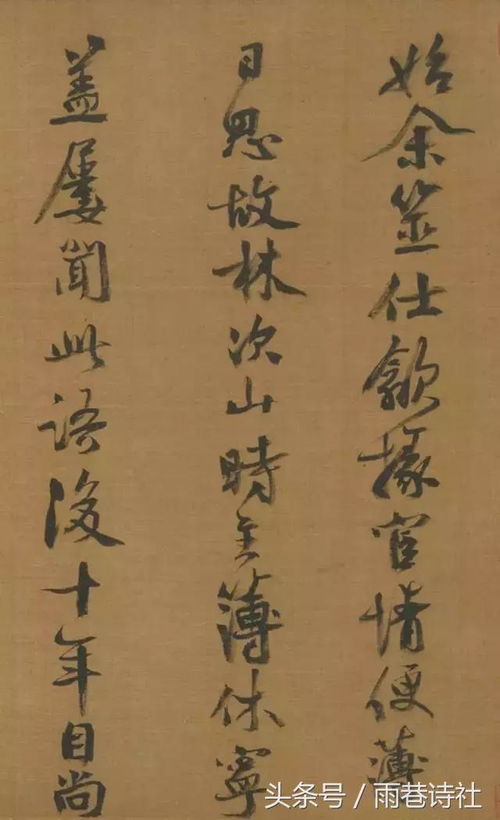 始余筮仕歙掾宦情便薄
日思故林次山時主簿休寧
蓋屢聞此語後十年自尚
头条号／雨巷诗社